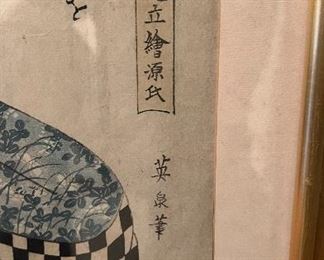 立繪源氏
英泉筆
を